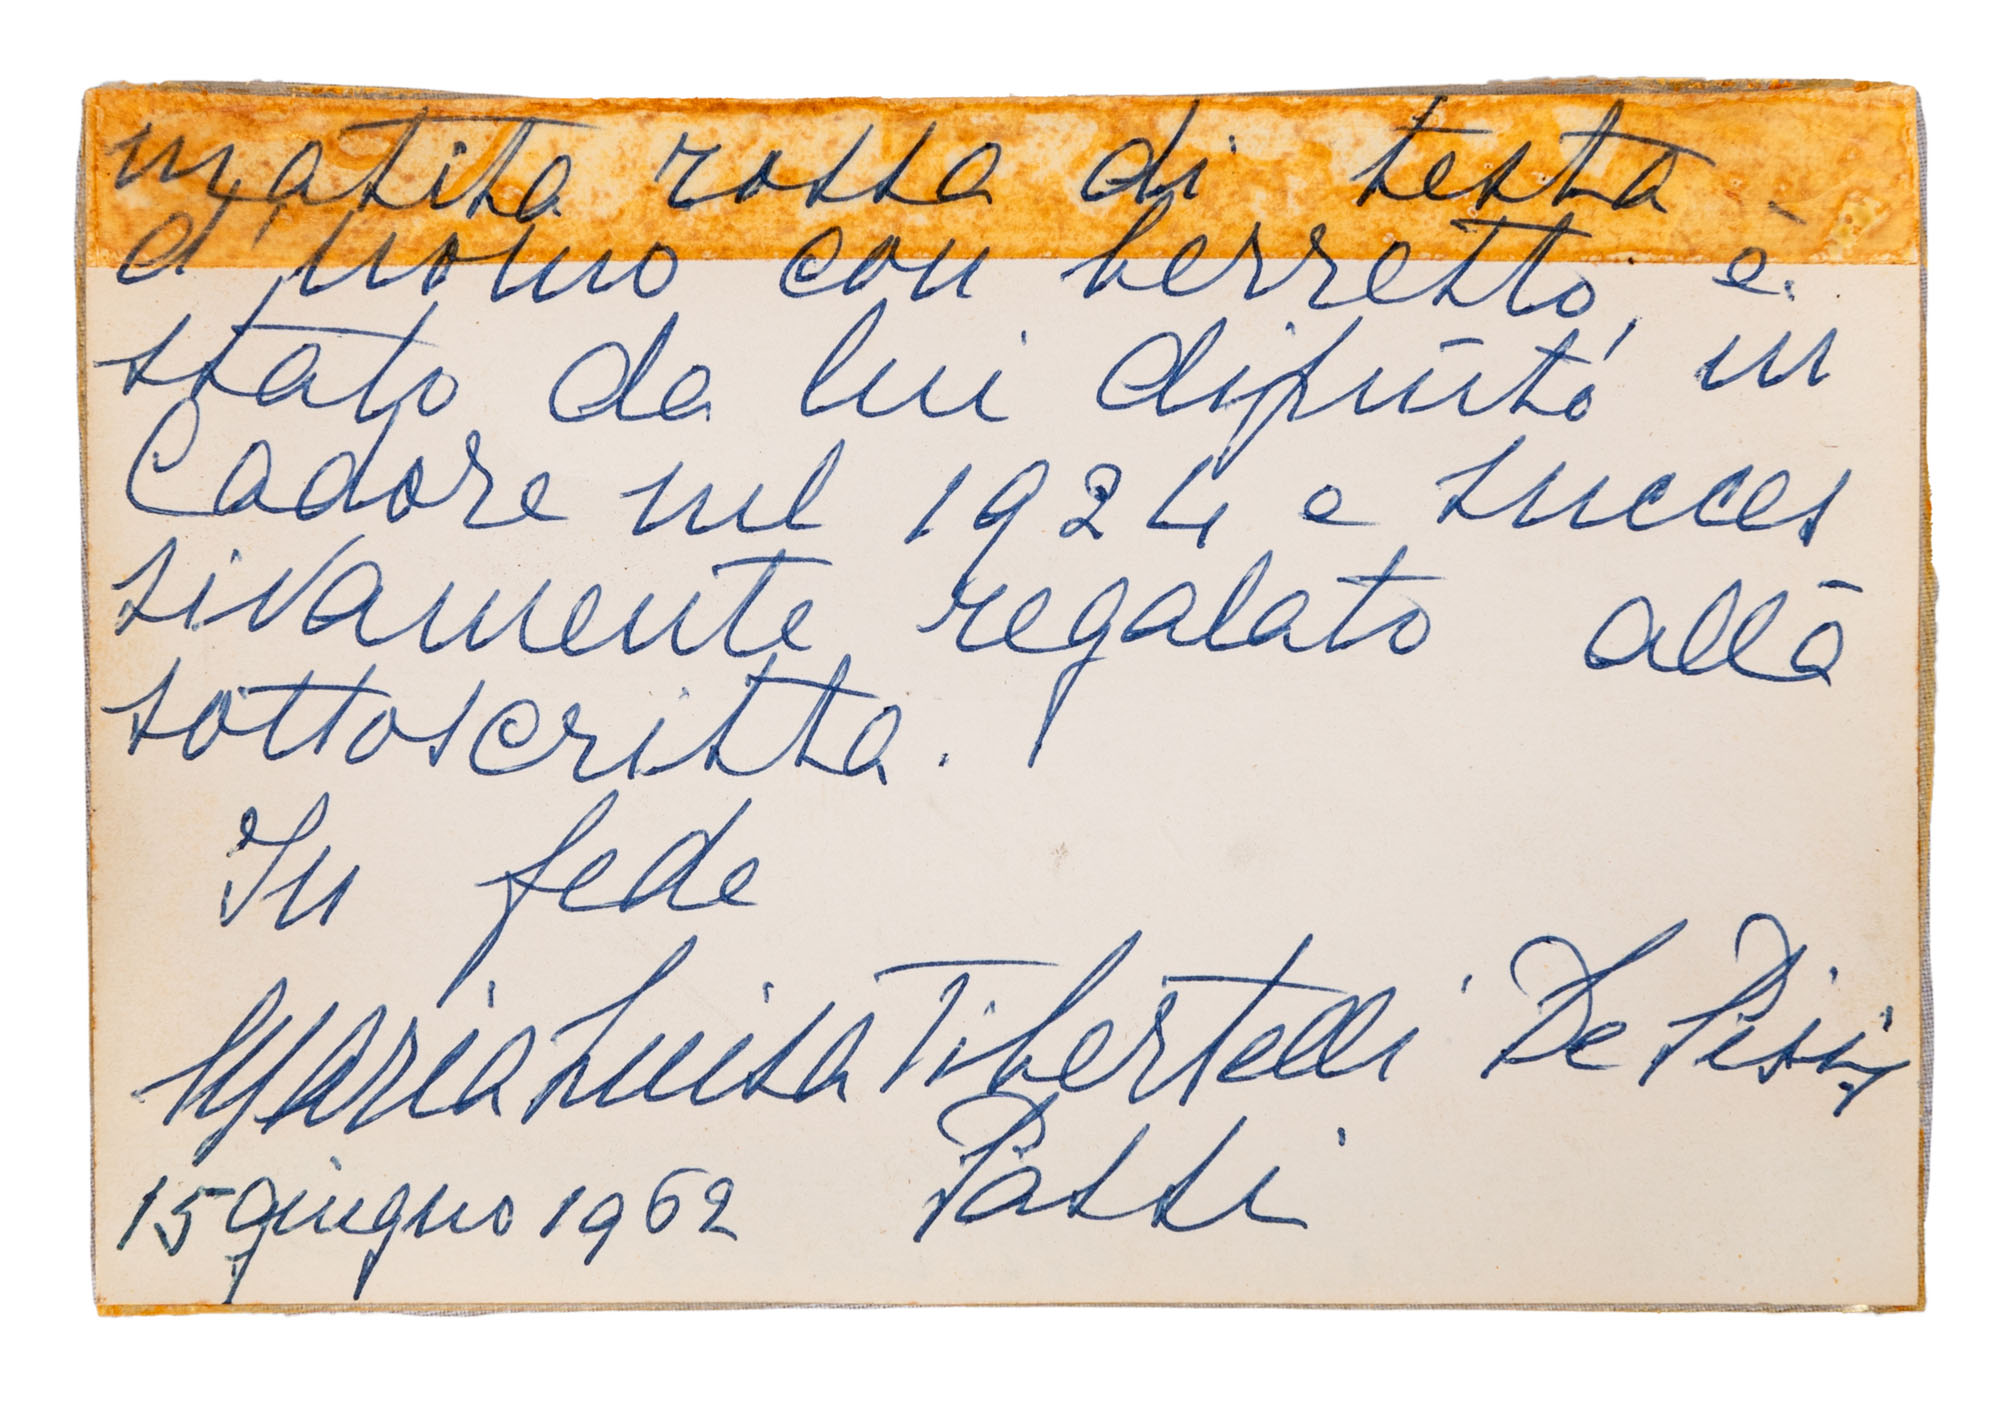 matita rossa di testa
d'uomo con berretto, è
stato da lui dipinto in
Cadore nel 1924 e succes
sivamente regalato alla
sottoscritta.
In fede
Maria Luisa Tibertelli De Pisis
Passi
15 giugno 1962